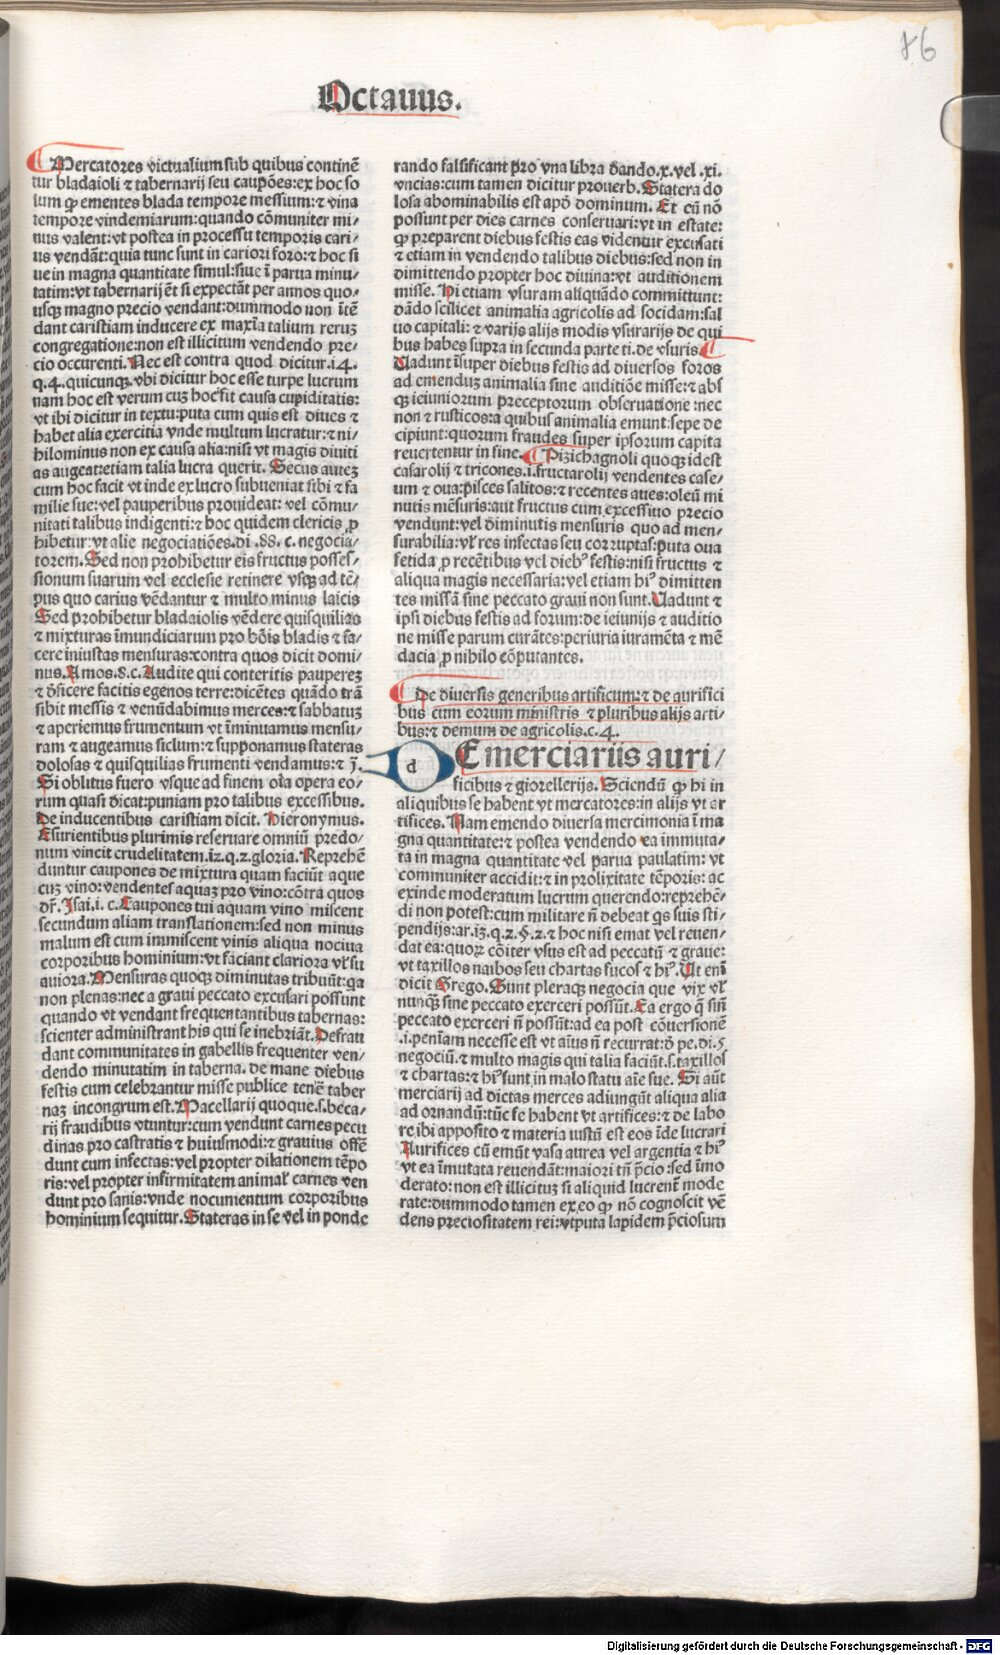 86
Octauus.
Mercatores victualium sub quibus continẽ
tur bladaioli ⁊ tabernarij seu caupões: ex hoc so
lum ꝙ ementes blada tempore messium: ⁊ vina
tempore vindemiarum: quando cõmuniter mi⸗
nus valent: vt postea in processu temporis cari⸗
us vendãt: quia tunc sunt in cariori foro: ⁊ hoc si
ue in magna quantitate simul: siue ĩ parua minu⸗
tatim: vt tabernarij ẽt si expectãt per annos quo⸗
usqꝫ magno precio vendant: dummodo non ĩtẽ
dant caristiam inducere ex maxĩa talium reruꝫ
congregatione: non est illicitum vendendo pre⸗
cio occurenti. Nec est contra quod dicitur .i4.
q.4. quicunqꝫ. vbi dicitur hoc esse turpe lucrum
nam hoc est verum cuꝫ hoc fit causa cupiditatis:
vt ibi dicitur in textu: puta cum quis est diues ⁊
habet alia exercitia vnde multum lucratur: ⁊ ni⸗
hilominus non ex causa alia: nisi vt magis diuiti
as augeat: etiam talia lucra querit. Secus auteꝫ
cum hoc facit vt inde ex lucro subueniat sibi ⁊ fa
milie sue: vel pauperibus prouideat: vel cõmu⸗
nitati talibus indigenti: ⁊ hoc quidem clericis ꝓ
hibetur: vt alie negociatiões. di .88. c. negocia⸗
torem. Sed non prohibetur eis fructus posses⸗
sionum suarum vel ecclesie retinere vsqꝫ ad tẽ⸗
pus quo carius vẽdantur ⁊ multo minus laicis
Sed prohibetur bladaiolis vẽdere quisquilias
⁊ mixturas ĩmundiciarum pro bõis bladis ⁊ fa⸗
cere iniustas mensuras: contra quos dicit domi⸗
nus. Amos .8. c. Audite qui conteritis paupereꝫ
⁊ d̃ficere facitis egenos terre: dicẽtes quãdo trã
sibit messis ⁊ venũdabimus merces: ⁊ sabbatuꝫ
⁊ aperiemus frumentum vt ĩminuamus mensu⸗
ram ⁊ augeamus siclum: ⁊ supponamus stateras
dolosas ⁊ quisquilias frumenti vendamus: ⁊ j̃.
Si oblitus fuero vsque ad finem oĩa opera eo⸗
rum quasi dicat: puniam pro talibus excessibus.
De inducentibus caristiam dicit. Hieronymus.
Esurientibus plurimis reseruare omniũ predo⸗
num vincit crudelitatem. iꝫ. q. 2. gloria. Reprehẽ
duntur caupones de mixtura quam faciũt aque
cuꝫ vino: vendentes aquaꝫ pro vino: cõtra quos
dr̃. Isai. i. c. Caupones tui aquam vino miscent
secundum aliam translationem: sed non minus
malum est cum immiscent vinis aliqua nociua
corporibus hominium: vt faciant clariora vl̃ su
auiora. Mensuras quoqꝫ diminutas tribuũt: qa
non plenas: nec a graui peccato excusari possunt
quando vt vendant frequentantibus tabernas:
scienter administrant his qui se inebriãt. Defrau
dant communitates in gabellis frequenter ven⸗
dendo minutatim in taberna. de mane diebus
festis cum celebrantur misse publice tenẽt taber
naꝫ incongrum est. Macellarij quoque .s. beca⸗
rij fraudibus vtuntur: cum vendunt carnes pecu
dinas pro castratis ⁊ huiusmodi: ⁊ grauius offẽ
dunt cum infectas: vel propter dilationem tẽpo
ris: vel propter infirmitatem animal̃ carnes ven
dunt pro sanis: vnde nocumentum corporibus
hominium sequitur. Stateras in se vel in ponde
rando falsificant pro vna libra dando .x. vel .xi.
vncias: cum tamen dicitur prouerb. Statera do
losa abominabilis est apd̃ dominum. Et cũ nõ
possunt per dies carnes conseruari: vt in estate:
ꝙ preparent diebus festis eas videntur excusati
⁊ etiam in vendendo talibus diebus: sed non in
dimittendo propter hoc diuina: vt auditionem
misse. Hi etiam vsuram aliquãdo committunt:
dãdo scilicet animalia agricolis ad socidam: sal
uo capitali: ⁊ varijs alijs modis vsurarijs de qui
bus habes supra in secunda parte ti. de vsuris.
Uadunt ĩsuper diebus festis ad diuersos foros
ad emenduꝫ animalia sine auditiõe misse: ⁊ absqꝫ
ieiuniorum preceptorum obseruatione: nec
non ⁊ rusticos: a quibus animalia emunt: sepe de
cipiunt: quorum fraudes super ipsorum capita
reuertentur in fine. Pizichagnoli quoqꝫ idest
casarolij ⁊ tricones .i. fructarolij vendentes case⸗
um ⁊ oua: pisces salitos: ⁊ recentes aues: oleũ mi
nutis mẽsuris: aut fructus cum excessiuo precio
vendunt: vel diminutis mensuris quo ad men⸗
surabilia: vl̃ res infectas seu corruptas: puta oua
fetida ꝓ recẽtibus vel diebꝰ festis: nisi fructus ⁊
aliqua magis necessaria: vel etiam hiꝰ dimitten
tes missã sine peccato graui non sunt. Uadunt ⁊
ipsi diebus festis ad forum: de ieiunijs ⁊ auditio
ne misse parum curãtes: periuria iuramẽta ⁊ mẽ
dacia ꝓ nihilo cõputantes.
De diuersis generibus artificum: ⁊ de aurifici
bus cum eorum ministris ⁊ pluribus alijs arti⸗
bus: ⁊ demum de agricolis. c. 4.
d
E merciariis auri⸗
ficibus ⁊ giorellerijs. Sciendũ ꝙ hi in
aliquibus se habent vt mercatores: in alijs vt ar
tifices. Nam emendo diuersa mercimonia ĩ ma
gna quantitate: ⁊ postea vendendo ea immuta⸗
ta in magna quantitate vel parua paulatim: vt
communiter accidit: ⁊ in prolixitate tẽporis: ac
exinde moderatum lucrum querendo: reprehẽ⸗
di non potest: cum militare ñ debeat qs suis sti⸗
pendijs: ar. iꝫ. q. 2. §. 2. ⁊ hoc nisi emat vel reuen⸗
dat ea: quoꝝ cõiter vsus est ad peccatũ ⁊ graue:
vt taxillos naibos seu chartas fucos ⁊ hiꝰ. Ut enĩ
dicit Grego. Sunt pleraqꝫ negocia que vix vl̃
nunqꝫ sine peccato exerceri possũt. Ea ergo q̃ sĩn
peccato exerceri ñ possũt: ad ea post cõuersionẽ
.i. penĩam necesse est vt aĩus ñ recurrat: d̃ pe. di. 5
negociũ. ⁊ multo magis qui talia faciũt. s. taxillos
⁊ chartas: ⁊ hiꝰ sunt in malo statu aĩe sue. Si aũt
merciarij ad dictas merces adiungũt aliqua alia
ad ornandũ: tũc se habent vt artifices: ⁊ de labo
re ibi apposito ⁊ materia iustũ est eos ĩde lucrari
Aurifices cũ emũt vasa aurea vel argentia ⁊ hiꝰ
vt ea ĩmutata reuendãt: maiori tñ p̃cio: sed ĩmo
derato: non est illicituꝫ si aliquid lucrent̃ mode
rate: dummodo tamen ex eo ꝙ nõ cognoscit vẽ
dens preciositatem rei: vtputa lapidem p̃ciosum
Digitalisierung gefördert durch die Deutsche Forschungsgemeinschaft - DFG